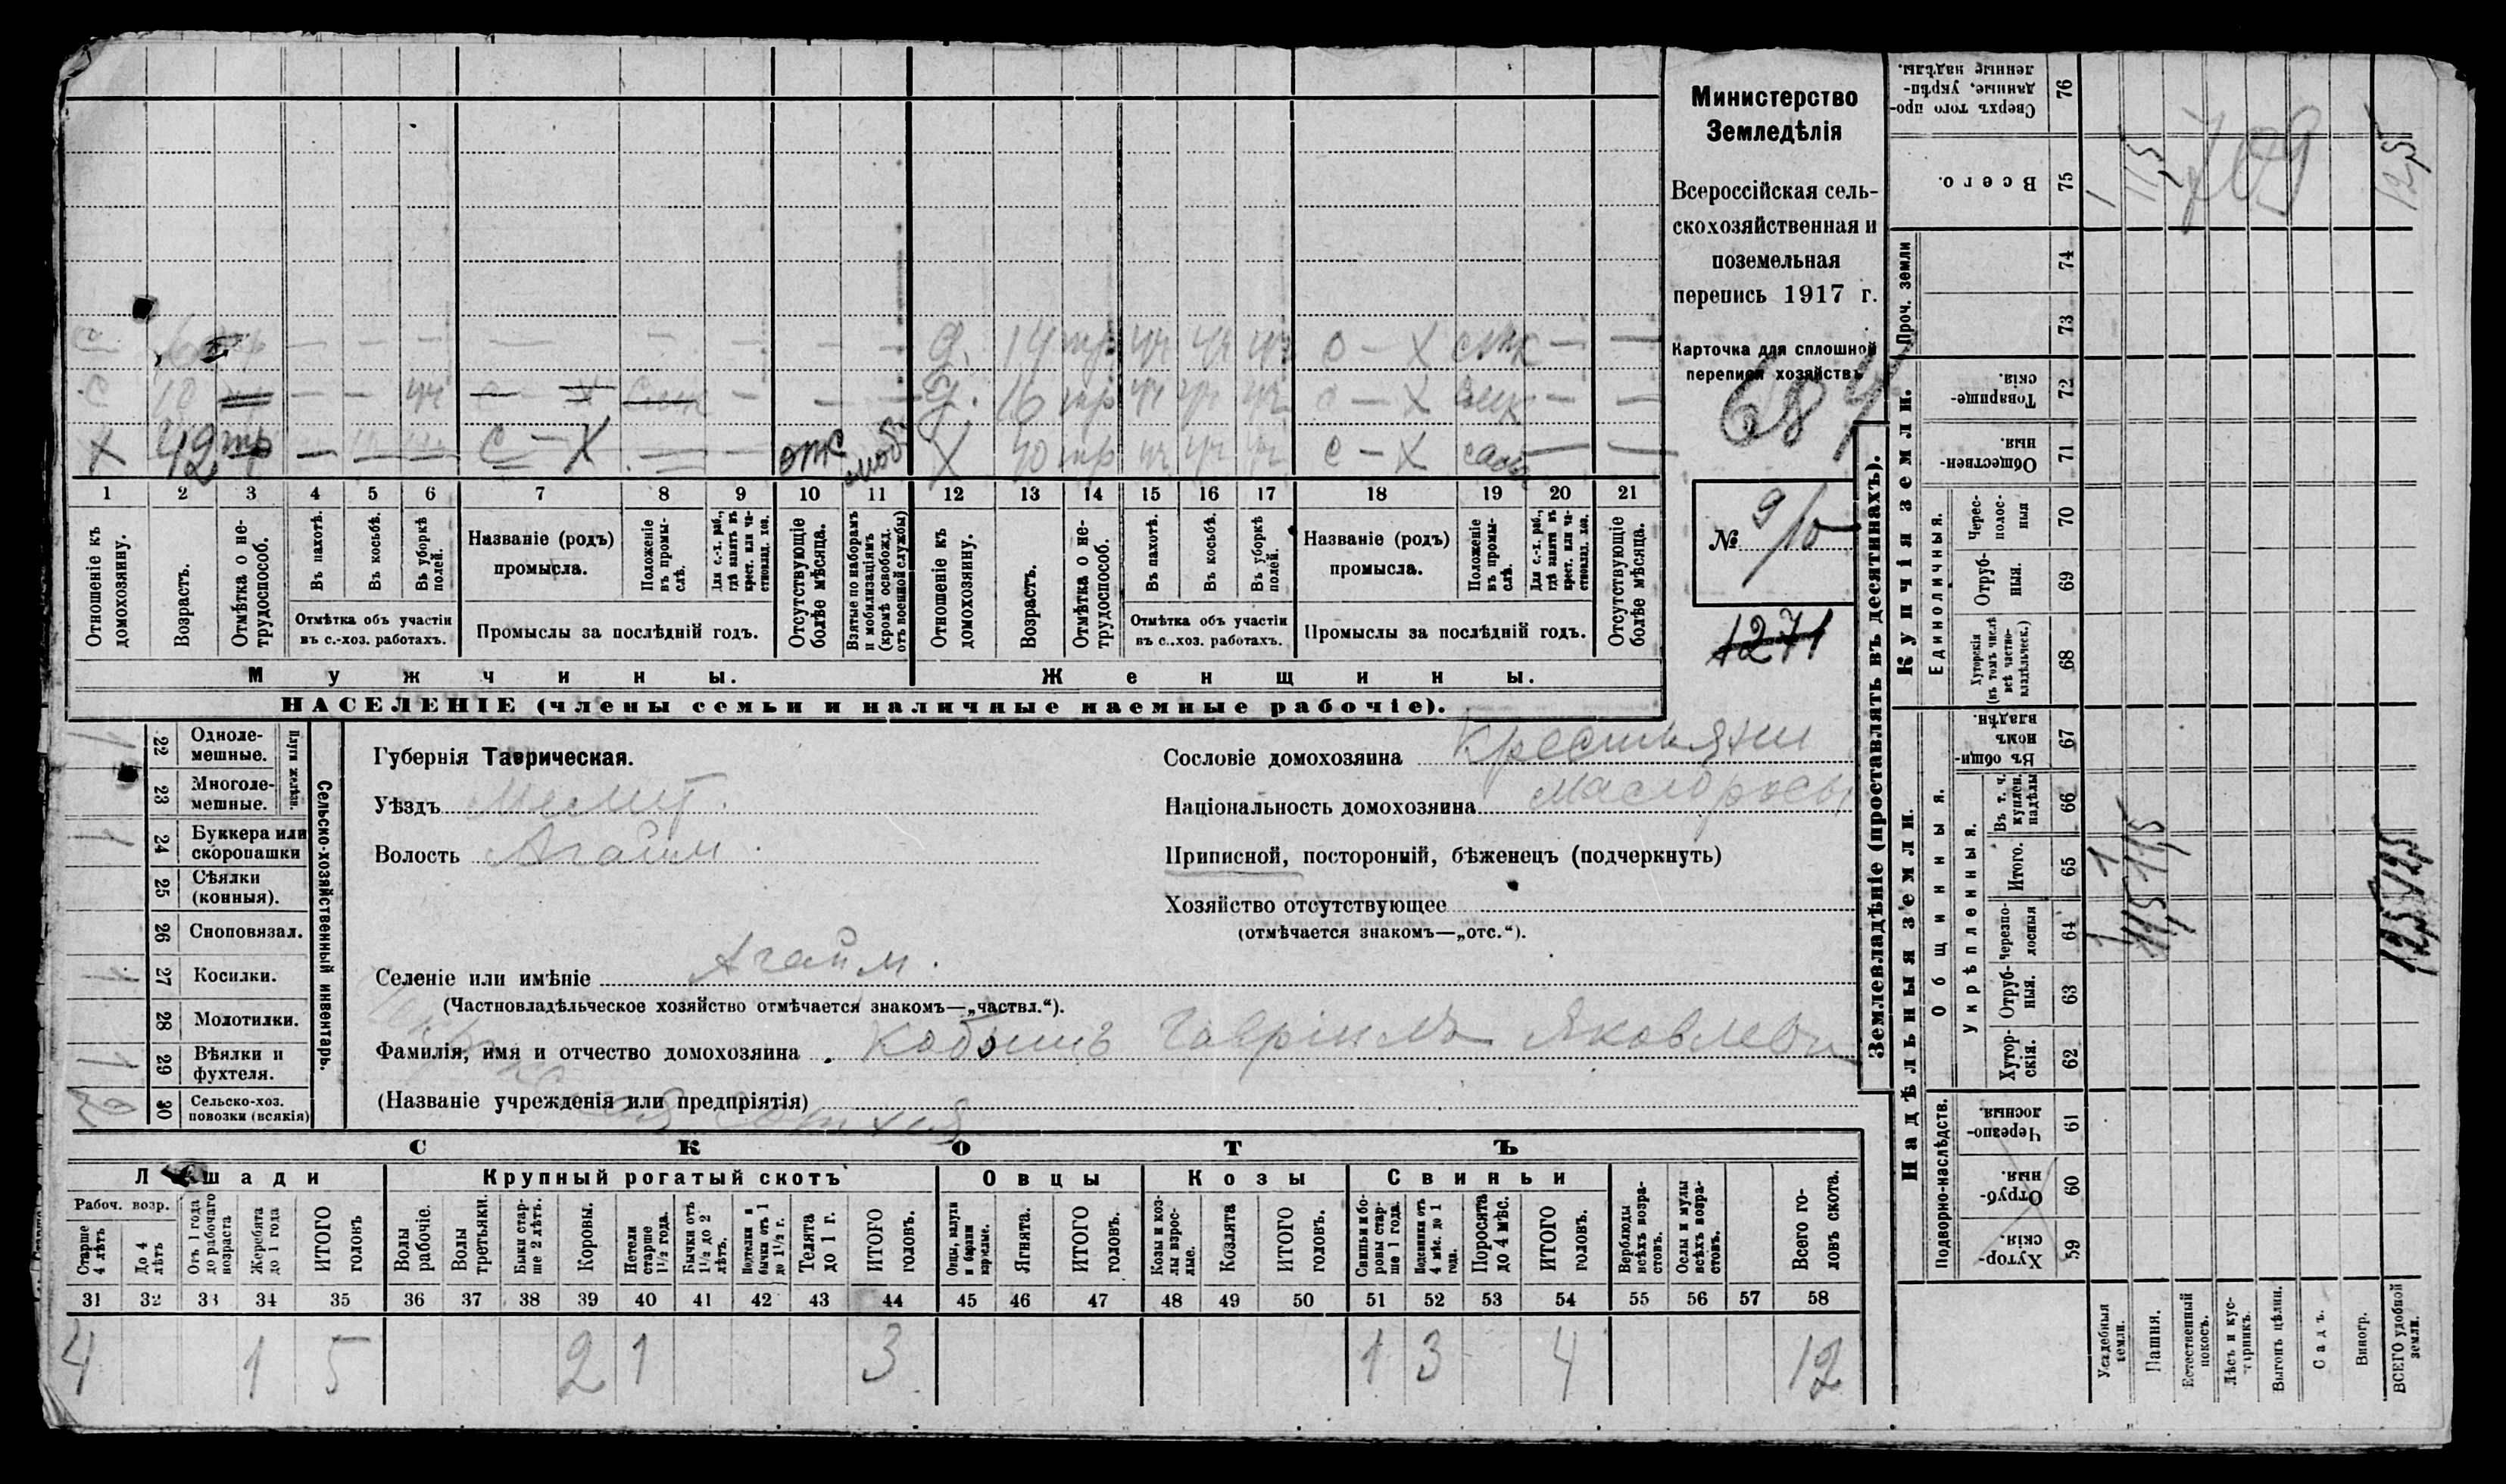 Министерство
Земледѣлія
Всероссійская сель-
скохозяйственная и
поземельная
перепись 1917 г.
Карточка для сплошной
переписи хозяйствъ
684
№ 9/10
1271
с — — — — — — — — д. 14 тр уч уч уч с — х — —
с 10 — — уч с — х — — — д. 16 тр уч уч уч с — х — —
х 42 тр — — — с — х — — отс моб х 40 тр уч уч уч с — х — —
1 2 3 4 5 6 7 8 9 10 11 12 13 14 15 16 17 18 19 20 21
Отношеніе къ домохозяину.
Возрастъ.
Отмѣтка о не-трудоспособ.
Въ пахотѣ.
Въ косьбѣ.
Въ уборкѣ полей.
Отмѣтка объ участіи
въ с.-хоз. работахъ.
Названіе (родъ)
промысла.
Положеніе въ промы-слѣ.
Для с.-х. раб., гдѣ занятъ въ крест. или ча-стновлад. хоз.
Промыслы за послѣдній годъ.
Отсутствующіе болѣе мѣсяца.
Взятые по наборамъ и мобилизаціямъ (кромѣ освобожд. отъ военной службы)
Отношеніе къ домохозяину.
Возрастъ.
Отмѣтка о не-трудоспособ.
Въ пахотѣ.
Въ косьбѣ.
Въ уборкѣ полей.
Отмѣтка объ участіи
въ с.-хоз. работахъ.
Названіе (родъ)
промысла.
Положеніе въ промы-слѣ.
Для с.-х. раб., гдѣ занятъ въ крест. или ча-стновлад. хоз.
Промыслы за послѣдній годъ.
Отсутствующіе болѣе мѣсяца.
Мужчины. Женщины.
НАСЕЛЕНІЕ (члены семьи и наличные наемные рабочіе).
22 Одноле-мешные. 1
23 Многоле-мешные.
Плуги желѣзн.
24 Буккера или скоропашки 1
25 Сѣялки (конныя).
26 Сноповязал.
27 Косилки. 1
28 Молотилки.
29 Вѣялки и фухтеля. 1
30 Сельско-хоз. повозки (всякія) 2
Сельско-хозяйственный инвентарь.
Губернія Таврическая.
Уѣздъ Мелит.
Волость Агайм.
Селеніе или имѣніе Агайм.
(Частновладѣльческое хозяйство отмѣчается знакомъ—„частвл.“).
Фамилія, имя и отчество домохозяина Гавріилъ Яковлев
(Названіе учрежденія или предпріятія)
Сословіе домохозяина Крестьянин
Національность домохозяина малоросъ
Приписной, посторонній, бѣженецъ (подчеркнуть)
Хозяйство отсутствующее
(отмѣчается знакомъ—„отс.“).
СКОТЪ
Лошади Крупный рогатый скотъ Овцы Козы Свиньи
Рабоч. возр.
Старше 4 лѣтъ
До 4 лѣтъ
Отъ 1 года до рабочаго возраста
Жеребята до 1 года
ИТОГО головъ
Волы рабочіе.
Волы третьяки.
Быки стар-ше 2 лѣтъ.
Коровы.
Нетели старше 1½ года.
Бычки отъ 1½ до 2 лѣтъ.
Нетелки и бычки отъ 1 до 1½ г.
Телята до 1 г.
ИТОГО головъ.
Овцы, валухи и бараны взрослые.
Ягнята.
ИТОГО головъ.
Козы и коз-лы взрос-лые.
Козлята
ИТОГО головъ.
Свиньи и бо-ровы стар-ше 1 года.
Подсвинки отъ 4 мѣс. до 1 года.
Поросята до 4 мѣс.
ИТОГО головъ.
Верблюды всѣхъ возра-стовъ.
Ослы и мулы всѣхъ возра-стовъ.
Всего го-ловъ скота.
31 32 33 34 35 36 37 38 39 40 41 42 43 44 45 46 47 48 49 50 51 52 53 54 55 56 57 58
4 1 5 2 1 3 1 3 4 12
Землевладѣніе (проставлять въ десятинахъ).
Надѣльныя земли.
Купчія земли.
Проч. земли
Сверхъ того про-данные, укрѣп-ленные надѣлы. 76
Всего. 75
74
73
Товарище-скія. 72
Обществен-ныя. 71
Единоличныя.
Черес-полос-ныя 70
Отруб-ныя. 69
Хуторскія (въ томъ числѣ всѣ частно-владѣльческ.) 68
Въ общин-номъ владѣн. 67
Общинныя.
Укрѣпленныя.
Въ т. ч. куплен. надѣлы 66
Итого. 65
Черезпо-лосныя 64
Отруб-ныя. 63
Хутор-скія. 62
Подворно-наслѣдств.
Черезпо-лосныя. 61
Отруб-ныя. 60
Хутор-скія. 59
Усадебныя земли. 1 1 1
Пашня. 11,5 11,5 11,5
Естественный покосъ.
Лѣсъ и кус-тарникъ.
Выгонъ цѣлин.
Садъ.
Виногр.
ВСЕГО удобной земли. 12,5 12,5 12,5
709